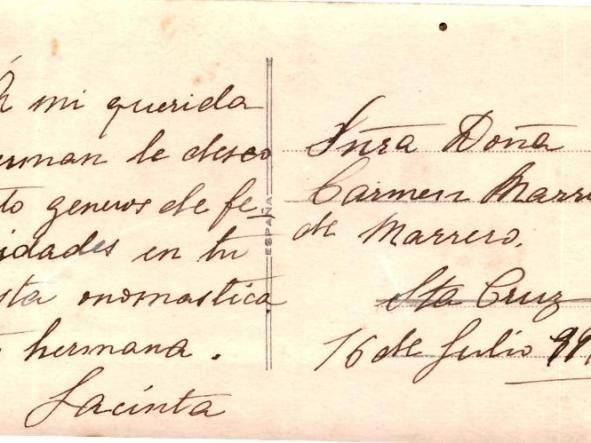 A mi querida
erman le deseo
to generos de fe
idades en tu
sta onomastica
hermana.
Jacinta
ESPAÑA
Sñra Doña
Carmen Marre
de Marrero.
Sta Cruz
16 de Julio